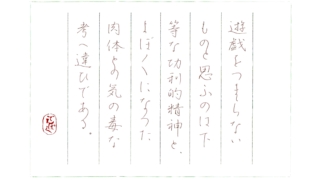 遊戯をつまらない
ものと思ふのは下
等な功利的精神と、
よぼ〳〵になつた
肉体との気の毒な
考へ違ひである。